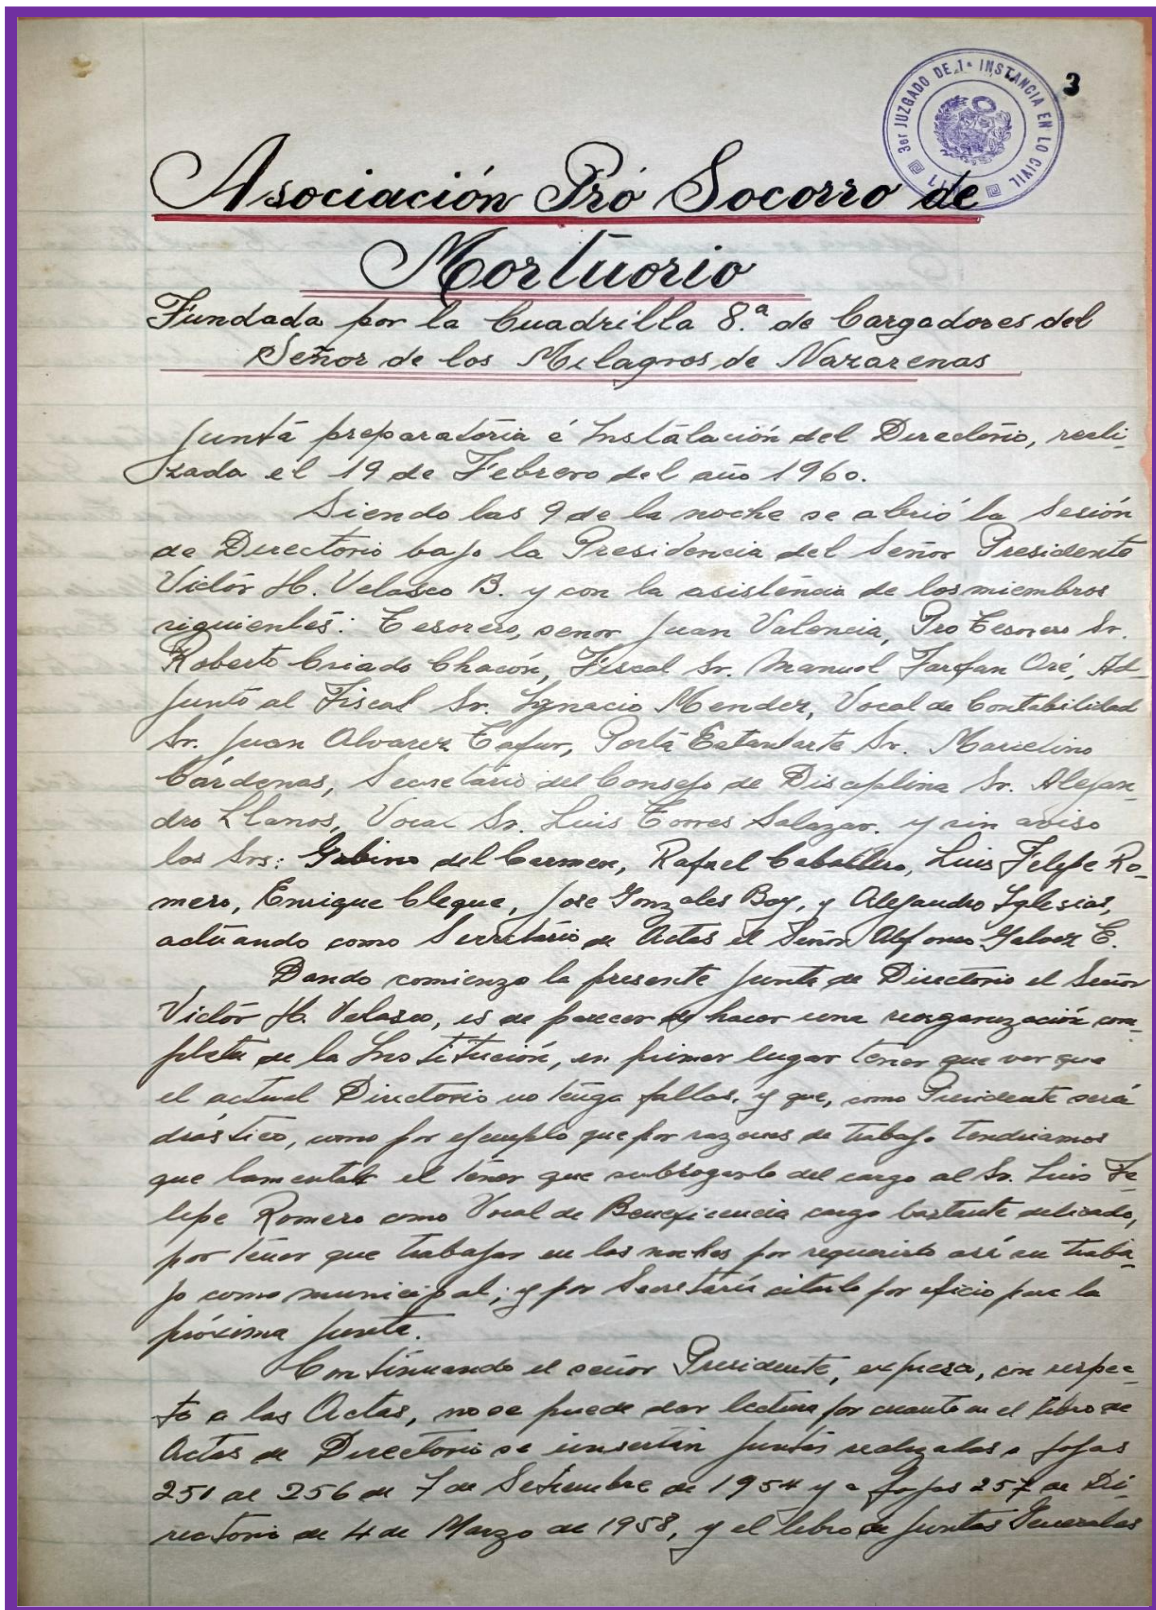 3
3er JUZGADO DE 1a INSTANCIA EN LO CIVIL
Asociación Pró Socorro de
Mortuorio
Fundada por la Cuadrilla 8.ª de Cargadores del
Señor de los Milagros de Nazarenas
Junta preparatoria é Instalación del Directorio, reali-
zada el 19 de Febrero del año 1960.
Siendo las 9 de la noche se abrió la Sesión
de Directorio bajo la Presidencia del Señor Presidente
Victór H. Velasco B. y con la asistencia de los miembros
siguientes: Tesorero, señor Juan Valencia, Pro Tesorero Sr.
Roberto Criado Chacón, Fiscal Sr. Manuel Farfan Oré, Ad-
junto al Fiscal Sr. Ignacio Mendez, Vocal de Contabilidad
Sr. Juan Alvarez Tafur, Porta Estandarte Sr. Marcelino
Cárdenas, Secretario del Consejo de Disciplina Sr. Alejan-
dro Llanos, Vocal Sr. Luis Torres Salazar. y sin aviso
los Srs: Gabino del Carmen, Rafael Caballero, Luis Felipe Ro-
mero, Enrique Cleque, Jose Gonzales Boy, y Alejandro Iglesias,
actuando como Secretario de Actas el Señor Alfonso Galvez E.
Dando comienzo la presente Junta de Directorio el Señor
Victór H. Velasco, es de parecer de hacer una reorganización com-
pleta de la Institución, en primer lugar tener que ver que
el actual Directorio no tenga fallas, y que, como Presidente será
drástico, como por ejemplo que por razones de trabajo tendriamos
que lamentar el tener que subrogarlo del cargo al Sr. Luis Fe-
lipe Romero como Vocal de Beneficencia cargo bastante delicado,
por tener que trabajar en las noches por requerirlo asi su traba-
jo como municipal; y por Secretaría citarlo por oficio para la
próxima Junta.
Continuando el señor Presidente, expresa, con respec-
to a las Actas, no se puede dar lectura por cuanto en el libro de
Actas de Directorio se insertan Juntas realizadas a fojas
251 al 256 de 7 de Setiembre de 1954 y a fojas 257 de Di-
rectorio de 4 de Marzo de 1958, y el libro de Juntas Generales